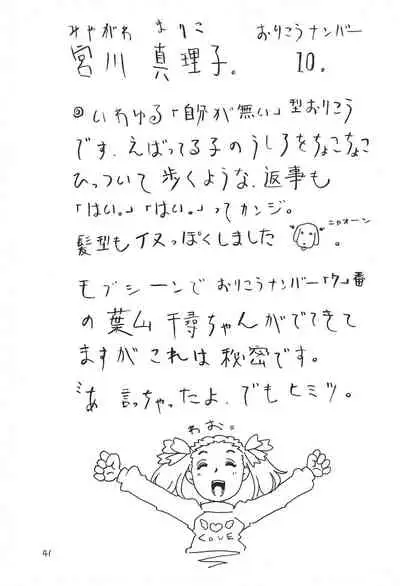 みやがわ まりこ おりこうナンバー
宮川 真理子。 10。
いわゆる「自分が無い」型おりこう
です。えばってる子のうしろをちょこちょこ
ひっついて歩くような、返事も
「はい。」「はい。」ってカンジ。
髪型もイヌっぽくしました 。
ニャオーン
モブシーンで おりこうナンバー「7」番
の 葉山 千尋ちゃんがでてきて
ますが これは 秘密です。
あ 言っちゃったよ、でもヒミツ。
わお。
LOVE
41